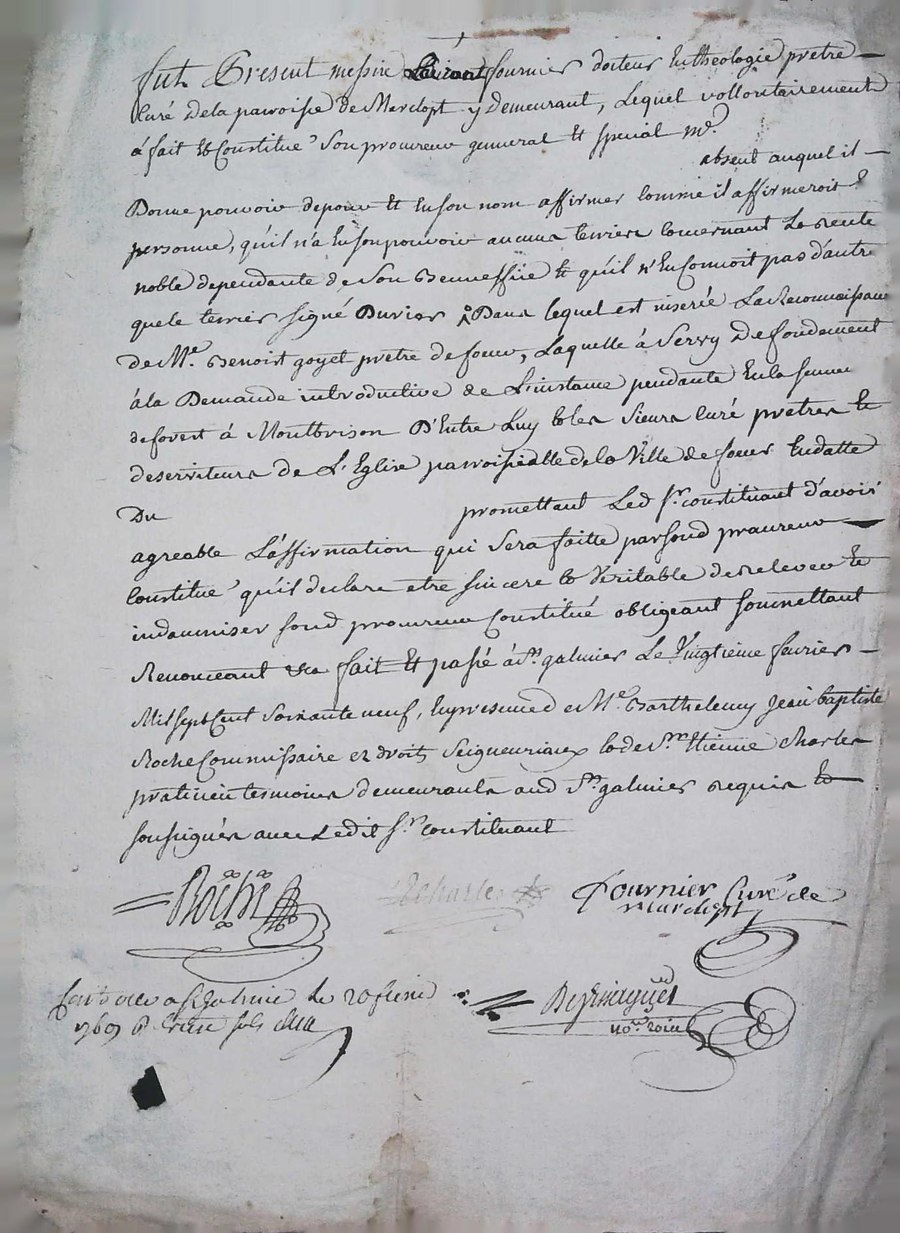 fut Present messire fournier docteur en theologie pretre
Curé de la parroisse de Marclopt y Demeurant, Lequel vollontairement
à fait et Constitué Son procureur general et special Me.
absent auquel il
Donne pouvoir de pour et En son nom affirmer comme il affirmeroit E
personne, qu'il n'a En son pouvoir aucuns terriers Concernant La Rente
noble dependante de Son Benneffiie et qu'il n'En connoit pas d'autre
que le terrier signé Duvier Dans lequel est inserée La Reconnoissance
de Me. Benoist goyet pretre de foeur, Laquelle à Servy De fondement
à la Demande introductive de L'instance pendante En la senne
de forest à Montbrison D'Entre Luy et les Sieurs Curé pretres et
deserviteurs de L'Eglise parroissialle de la Ville de foeur En datte
Du promettant Led sr. constituant d'avoir
agreable L'affirmation qui Sera faitte par sond procureur
Constitué qu'il declare etre sincere et Veritable de relever et
indamniser sond procureur Constitué obligeant soumettant
Renonceant &a fait et passé à St. galmier Le Vingtieme fevrier
Mil sept Cent soixante neuf, En presence de Me. Barthelemy Jean baptiste
Roche Commissaire ez droits Seigneuriaux et de Sr. Etienne Charles
praticien temoins demeurants aud St. galmier requis et
soussignés avec Ledit Sr. constituant
Roche Charles Fournier Curé de
Marclopt
a St Galmier le 20 fevrie
1769 R treize sols
not. roial